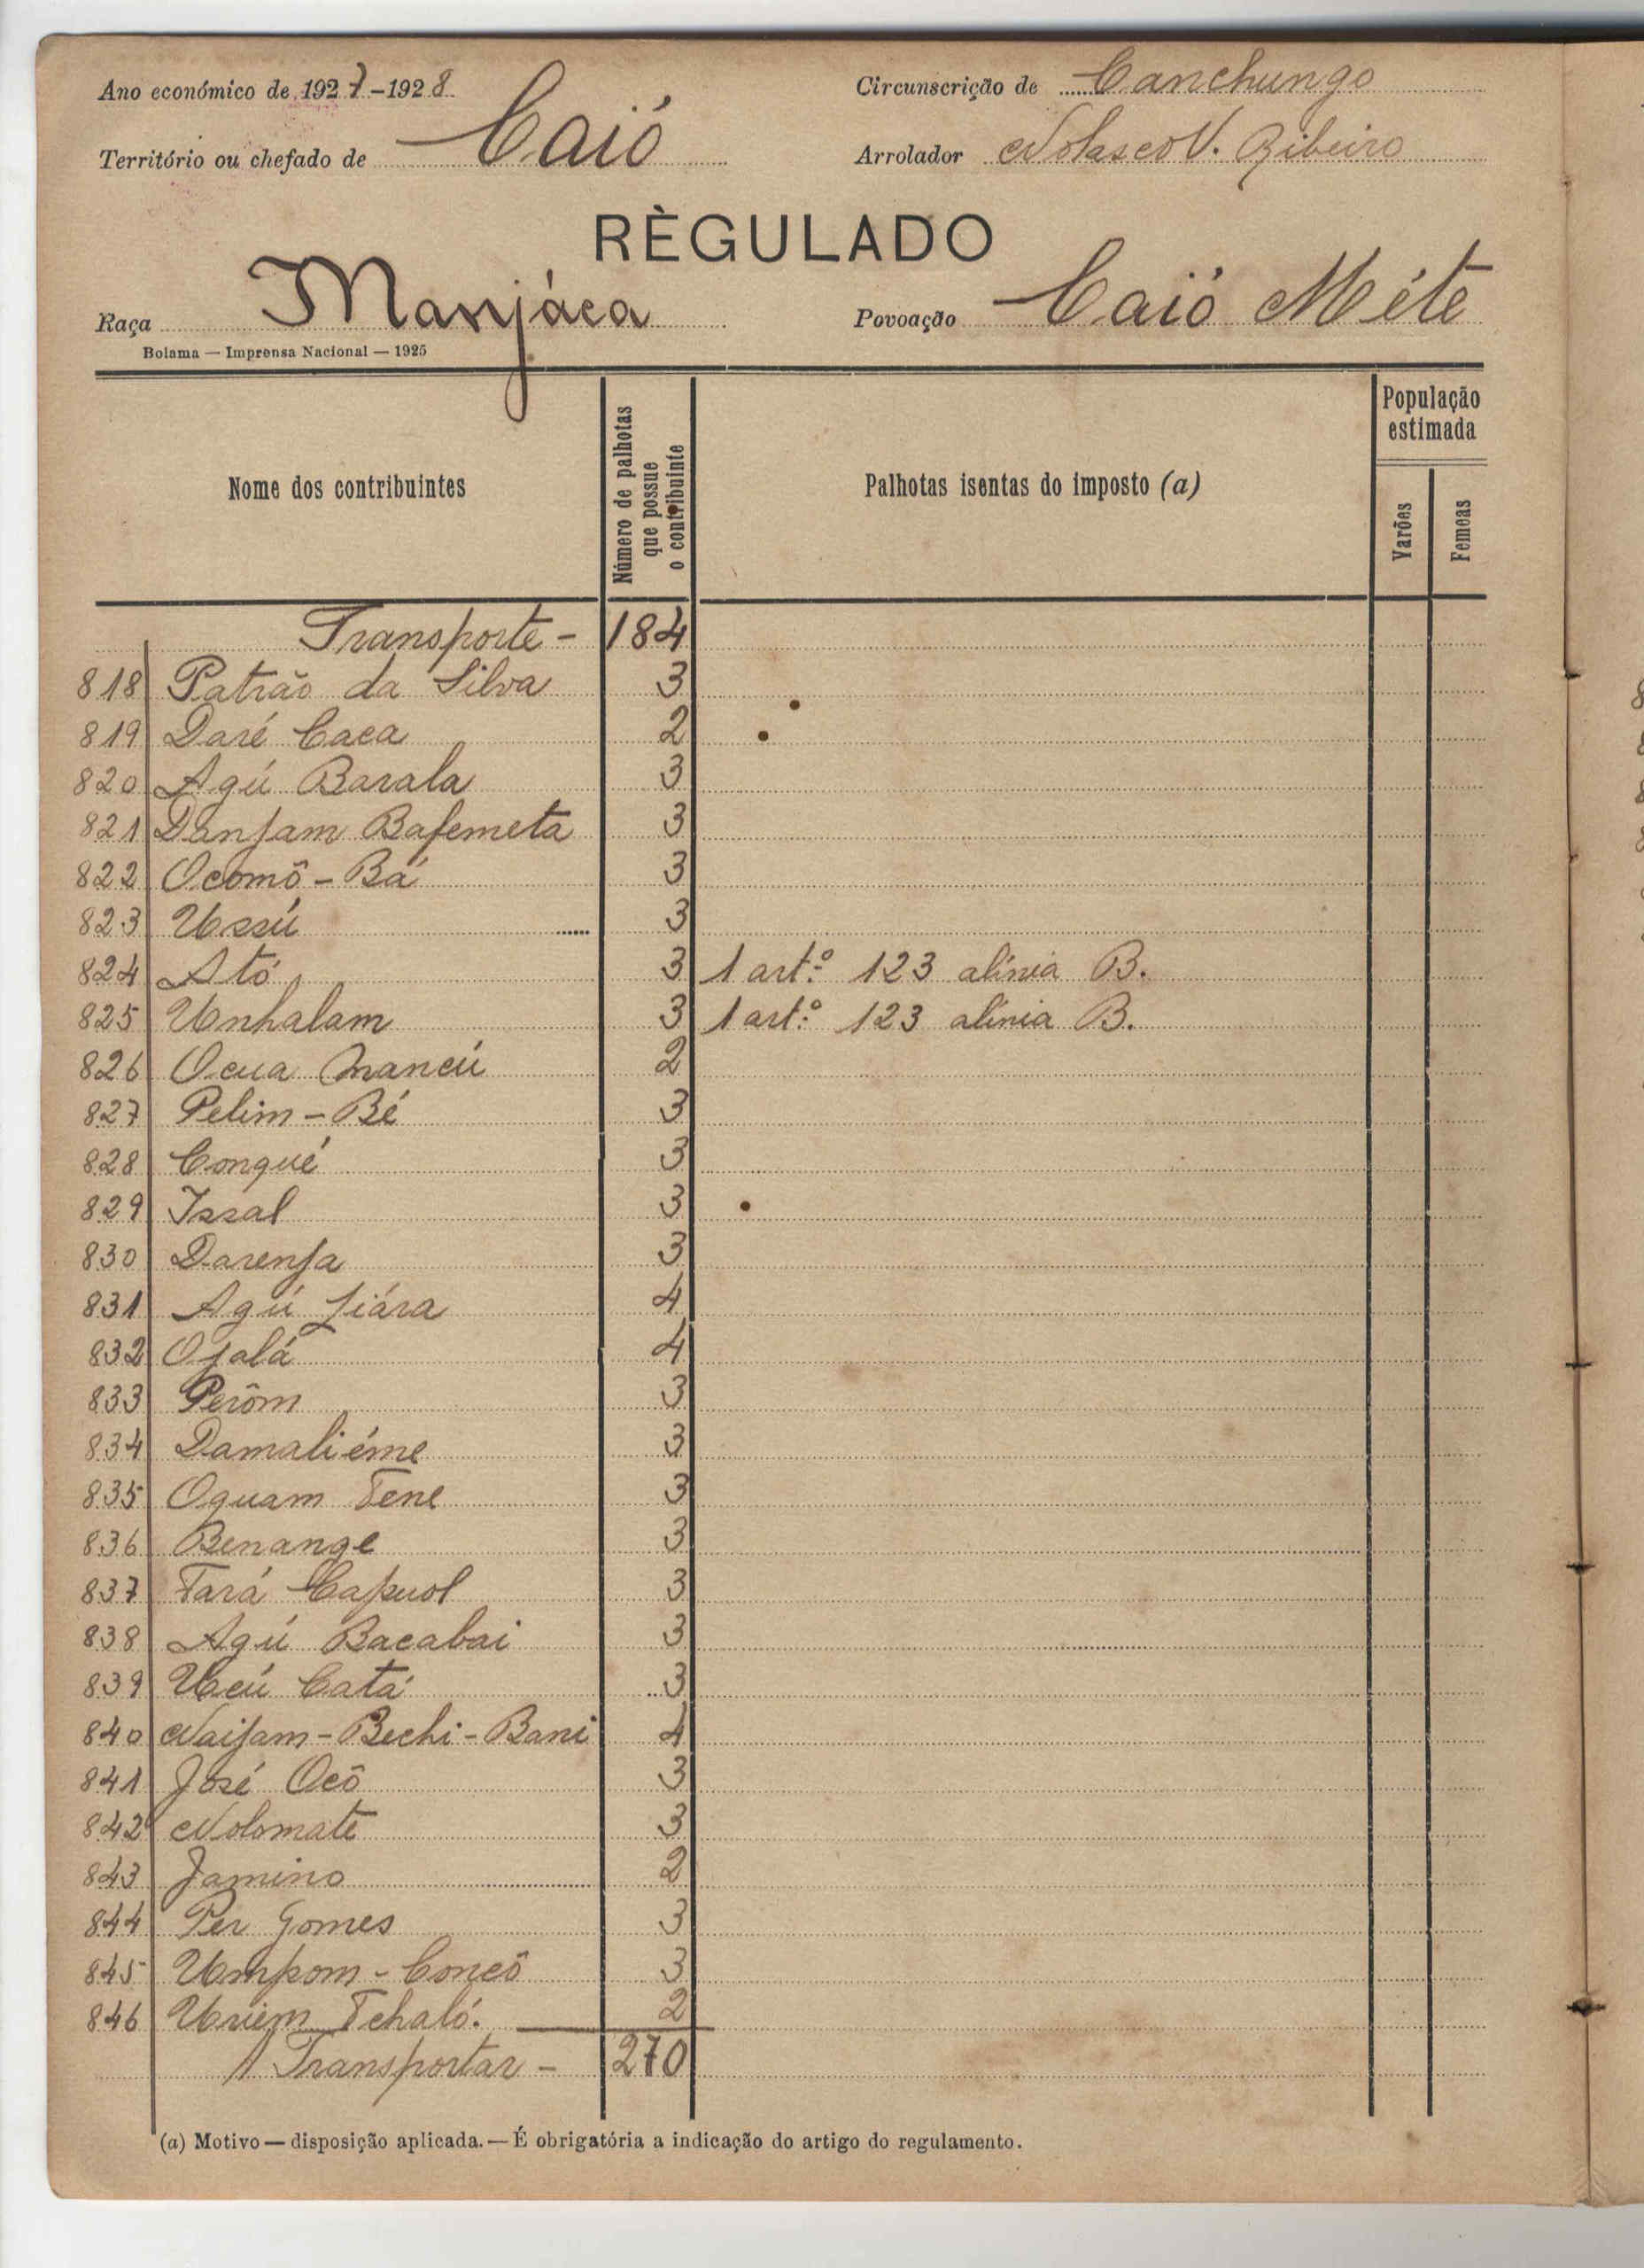 Ano económico de 1927-1928
Circunscrição de Canchungo
Território ou chefado de Caió
Arrolador Nolasco V. Ribeiro
RÈGULADO
Raça Manjáca
Povoação Caió Méte
Bolama — Imprensa Nacional — 1925
Nome dos contribuintes
Número de palhotas que possue o contribuinte
Palhotas isentas do imposto (a)
População estimada
Varões
Femeas
Transporte - 184
818 Patrão da Silva 3
819 Daré Caca 2
820 Agú Barala 3
821 Danjam Bafemeta 3
822 Ocomô - Bá 3
823 Ussú 3
824 Ató 3 1 artº 123 alínia B.
825 Unhalam 3 1 artº 123 alínia B.
826 Ocua Mancú 2
827 Pelim - Bé 3
828 Conqué 3
829 Issal 3
830 Darenja 3
831 Agú Jiára 4
832 Ojalá 4
833 Perôm 3
834 Damaliéme 3
835 Oquam Tene 3
836 Benange 3
837 Tará Capuol 3
838 Agú Bacabai 3
839 Ucú Catá 3
840 Naijam - Bechi - Bani 4
841 José Ocô 3
842 Nolomate 3
843 Jamino 2
844 Per Gomes 3
845 Umpom - Concô 3
846 Uriem Tchaló. 2
A Transportar - 270
(a) Motivo — disposição aplicada. — É obrigatória a indicação do artigo do regulamento.